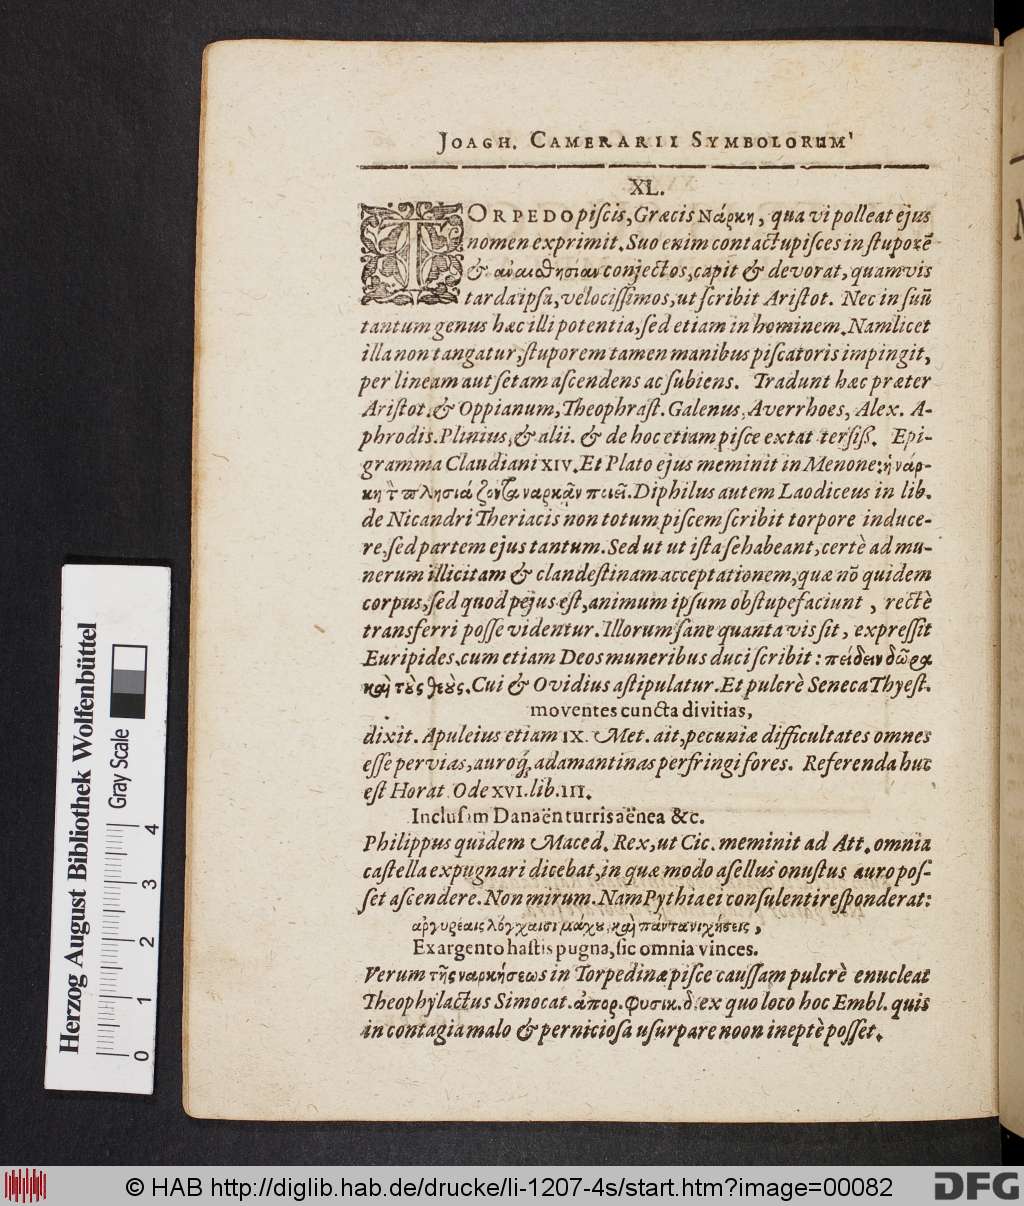 JOAGH. CAMERARII SYMBOLORUM
XL.
TORPEDO piſcis, Græcis Νάρκη, qua vi polleat ejus
nomen exprimit. Suo enim contactu piſces in ſtuporē
& ἀναισθησίαν conjectos, capit & devorat, quamvis
tarda ipſa, velociſſimos, ut ſcribit Ariſtot. Nec in ſuū
tantum genus hæc illi potentia, ſed etiam in hominem. Nam licet
illa non tangatur, ſtuporem tamen manibus piſcatoris impingit,
per lineam aut ſetam aſcendens ac ſubiens. Tradunt hæc præter
Ariſtot. & Oppianum, Theophraſt. Galenus, Averrhoes, Alex. A-
phrodis. Plinius, & alii. & de hoc etiam piſce extat terſiß. Epi-
gramma Claudiani XIV. Et Plato ejus meminit in Menone: ἡ νάρ-
κη πλησιάζοντα ναρκᾶν ποιεῖ. Diphilus autem Laodiceus in lib.
de Nicandri Theriacis non totum piſcem ſcribit torpore induce-
re, ſed partem ejus tantum. Sed ut ut iſta ſe habeant, certè ad mu-
nerum illicitam & clandeſtinam acceptationem, quæ nō quidem
corpus, ſed quod pejus eſt, animum ipſum obſtupefaciunt, rectè
transferri poſſe videntur. Illorum ſane quanta vis ſit, expreſſit
Euripides, cum etiam Deos muneribus duci ſcribit: πείθειν δῶρα
καὶ τοὺς θεούς. Cui & Ovidius aſtipulatur. Et pulcrè Seneca Thyeſt.
moventes cuncta divitias,
dixit. Apuleius etiam IX. Met. ait, pecuniæ difficultates omnes
eſſe pervias, auroq́; adamantinas perfringi fores. Referenda huc
eſt Horat Ode XVI. lib. III.
Incluſam Danaën turris aënea &c.
Philippus quidem Maced. Rex, ut Cic. meminit ad Att. omnia
caſtella expugnari dicebat, in quæ modo aſellus onuſtus auro poſ-
ſet aſcendere. Non mirum. Nam Pythia ei conſulenti reſponderat:
ἀργυρέαις λόγχαισι μάχου, καὶ πάντα νικήσεις,
Ex argento haſtis pugna, ſic omnia vinces.
Verum τῆς ναρκήσεως in Torpedinæ piſce cauſſam pulcrè enucleat
Theophylactus Simocat. ἀπορ. φυσικ. δ. ex quo loco hoc Embl. quis
in contagia malo & pernicioſa uſurpare noon ineptè poſſet.
Herzog August Bibliothek Wolfenbüttel
Gray Scale
0 1 2 3 4
© HAB http://diglib.hab.de/drucke/li-1207-4s/start.htm?image=00082
DFG